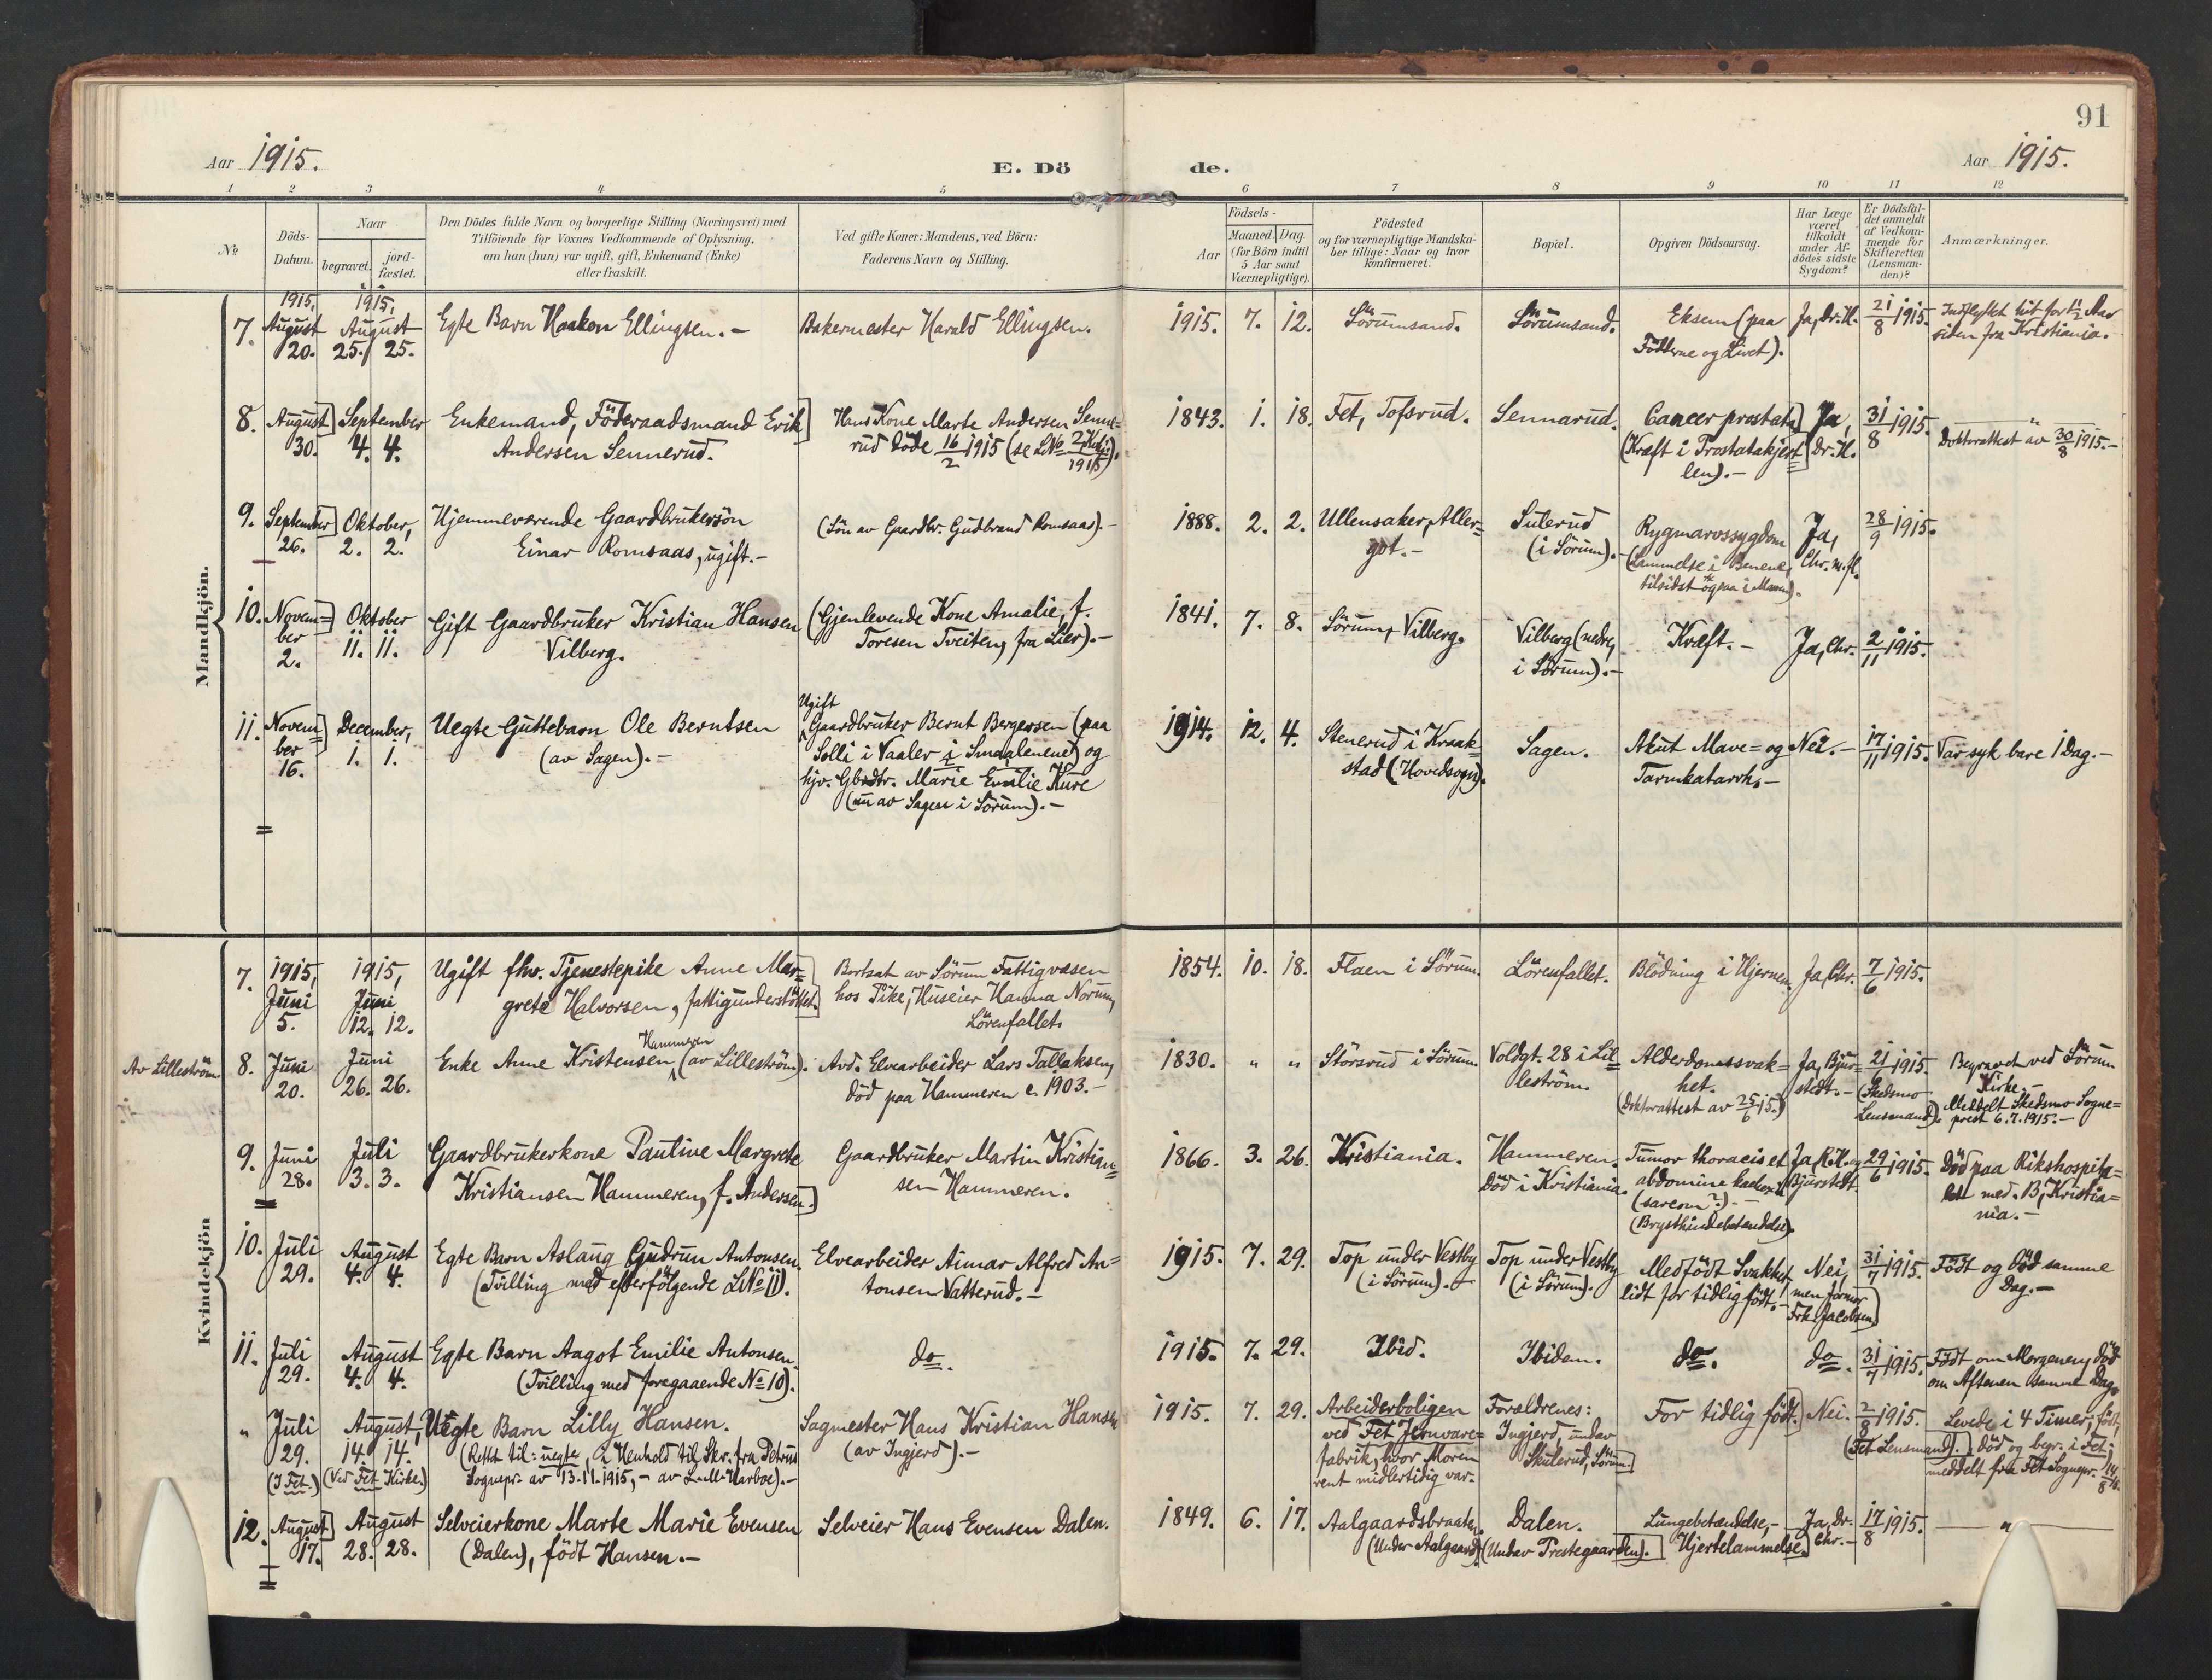 91
Aar 1915.
E. Dö
de.
Aar 1915.
1 2 3 4 5 6 7 8 9 10 11 12
No
Döds-
Datum.
Naar
begravet.
jord-
fæstet.
Den Dödes fulde Navn og borgerlige Stilling (Næringsvei) med
Tilföiende for Voxnes Vedkommende af Oplysning,
om han (hun) var ugift, gift, Enkemand (Enke)
eller fraskilt.
Ved gifte Koner: Mandens, ved Börn:
Faderens Navn og Stilling.
Födsels-
Aar
Maaned. Dag.
(for Börn indtil
5 Aar samt
Værnepligtige).
Födested
og for værnepligtige Mandska-
ber tillige: Naar og hvor
konfirmeret.
Bopæl.
Opgiven Dödsaarsag.
Har Læge
været
tilkaldt
under Af-
dödes sidste
Sygdom?
Er Dödsfal-
det anmeldt
af Vedkom-
mende for
Skifteretten
(Lensman-
den)?
Anmærkninger.
Mandkjön.
7.
1915,
August
20.
1915,
August
25. 25.
Egte Barn Haakon Ellingsen. -
Bakermester Harald Ellingsen.
1915. 7. 12.
Sörumsand.
Sörumsand.
Eksem (paa
Födterne og Livet).
Ja, Dr. H.
21/8 1915.
Indflyttet hit for 1/2 Aar
siden fra Kristiania. -
8.
August
30.
September
4. 4.
Enkemand, Föderaadsmand Erik
Andersen Sennerud.
Hans Kone Marte Andersen Senne=
rud döde 16/2 1915 (se LNo 2 Kvkj. 1915).
1843. 1. 18.
Fet, Tofsrud.
Sennarud.
Cancer prostata
(Kræft i Prostatakjert
len). -
Ja,
Dr. H.
31/8 1915.
"
Doktorattest av 30/8 1915. -
9.
September
26.
Oktober,
2. 2.
Hjemmeværende Gaardbrukersön
Einar Romsaas, ugift. -
(Sön av Gaardbr. Gudbrand Romsaas). -
1888. 2. 2.
Ullensaker, Aller=
got. -
Sulerud
(i Sörum). -
Rygmarvssygdom
(Lammelse i Benene,
tilsidst ogsaa i Maven).
Ja,
Chr. m. fl.
28/9 1915.
10.
Novem=
ber
2.
Oktober
11. 11.
Gift Gaardbruker Kristian Hansen
Vilberg.
(Gjenlevende Kone Amalie, f.
Toresen Tveiten, fra Lier). -
1841. 7. 8.
Sörum, Vilberg.
Vilberg (nedre,
i Sörum). -
Kræft. -
Ja, Chr.
2/11 1915.
11.
Novem=
ber
16.
December,
1. 1.
Uegte Guttebarn Ole Berntsen
(av Sagen). -
Ugift
Gaardbruker Bernt Bergersen (paa
Solli i Vaaler i Smaalenene) og
hjv. Gbrdtr. Marie Emilie Kure
(nu av Sagen i Sörum). -
1914. 12. 4.
Stenerud i Kraak=
stad (Hovedsogn).
Sagen.
Akut Mave= og
Tarmkatarrh. -
Nei. -
17/11 1915.
Var syk bare 1 Dag. -
Kvindekjön
7.
1915,
Juni
5.
1915,
Juni
12. 12.
Ugift fhv. Tjenestepike Anne Mar=
grete Halvorsen, fattigunderstöttet.
Bortsat av Sörum Fattigvæsen
hos Pike, Huseier Hanna Norum,
Lörenfallet.
1854. 10. 18.
Flaen i Sörum.
Lörenfallet.
Blödning i Hjernen.
Ja, Chr.
7/6 1915.
Av Lilleström
8.
Juni
20.
Juni
26. 26.
Enke Anne Kristensen Hammeren (av Lilleström).
Avd. Elvearbeider Lars Tallaksen,
död paa Hammeren c. 1903. -
1830. " "
Störsrud i Sörum.
Voldgt. 28 i Lil=
leström.
Alderdomssvak=
het.
(Doktorattest av 25/6 15.)
Ja, Bjur=
stedt. -
21/6 1915.
(Skedsmo
Lensmand).
Begravet ved Sörum
Kirke. -
Meddelt Skedsmo Sogne=
prest 6.7.1915. -
9.
Juni
28.
Juli
3. 3.
Gaardbrukerkone Pauline Margrete
Kristiansen Hammeren, f. Andersen.
Gaardbruker Martin Kristian=
sen Hammeren.
1866. 3. 26.
Kristiania.
Hammeren.
Död i Kristiania.
Tumor thoracis et
abdomine
(sarcom?). -
(Brysthindebetændelse).
Ja, R.H. og
Bjurstedt.
29/6 1915.
Död paa Rikshospita=
let med. B, Kristia=
nia. -
10.
Juli
29.
August
4. 4.
Egte Barn Aslaug Gudrun Antonsen.
(Tvilling med efterfölgende LNo 11).
Elvearbeider Aimar Alfred An=
tonsen Vatterud. -
1915. 7. 29.
Top under Vestby
(i Sörum). -
Top under Vestby
(i Sörum).
Medfödt Svakhet,
lidt for tidlig födt. -
Nei,
men Jormor
Frk. Jacobsen)
31/7 1915.
Födt og död samme
Dag. -
11.
Juli
29.
August
4. 4.
Egte Barn Aagot Emilie Antonsen.
(Tvilling med foregaaende No 10).
do.
1915. 7. 29.
Ibid.
Ibidem.
do.
do.
31/7 1915.
Födt om Morgenen, död
om Aftenen samme Dag.
"
Juli
29.
(I Fet.)
August,
14. 14.
(Ved Fet Kirke.)
Uegte Barn Lilly Hansen.
(Rettet til: uegte, i Henhold til Skr. fra Petrus
Sognepr. av 13.11.1915, - av L. M. Harboe). -
Sagmester Hans Kristian Hansen
(av Ingjerd). -
1915. 7. 29.
Arbeiderboligen
ved Fet Jernvare=
fabrik, hvor Moren
rent midlertidig var.
Forældrenes:
Ingjerd, under
Skulerud, Sörum.
For tidlig födt.
Nei.
2/8 1915.
(Fet Lensmand).
Levede i 4 Timer; födt,
död og begr. i Fet;
meddelt fra Fet Sognepr. 14/8
12.
August
17.
August
28. 28.
Selveierkone Marte Marie Evensen
(Dalen), födt Hansen. -
Selveier Hans Evensen Dalen.
1849. 6. 17.
Aalgaardsbraaten
(Under Aalgaard)
Dalen.
(Undav Prestegaarden).
Lungebetændelse, -
Hjertelammelse.
Ja, Dr.
Chr. -
17/8 1915.
"